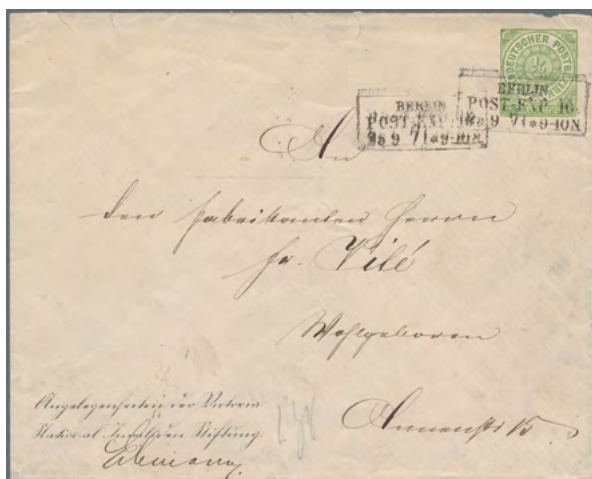 NORDDEUTSCHER POSTBEZIRK
1/3
BERLIN
POST-EXP. 16
28 9 71 * 9-10N
BERLIN
POST-EXP. 16
28 9 71 * 9-10N
An
den Fabrikanten Herrn
Fr. Vilé
Wohlgeboren
Annenstr 15
Angelegenheiten der Victoria
National Invaliden Stiftung